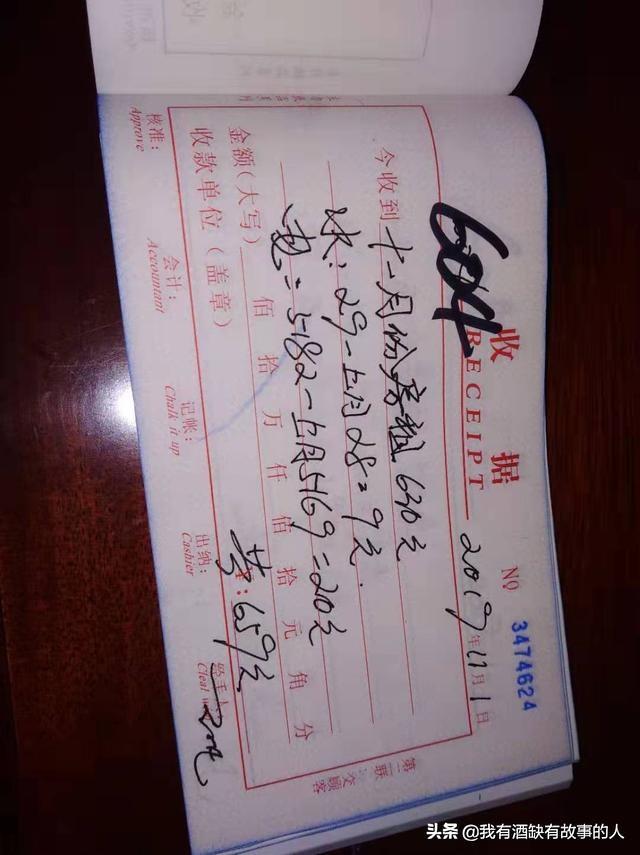 604
收据
RECEIPT
№ 3474624
2019年11月1日
今收到 十一月份房租630元
水:29-上月28=9元.
电:5182-上月5169=20元
金额(大写) 佰 拾 万 仟 佰 拾 元 角 分
共:659元
收款单位(盖章)
核准: 会计: 记帐: 出纳:
Approve Accountant Chalk it up Cashier
第二联:交顾客
头条 @我有酒缺有故事的人